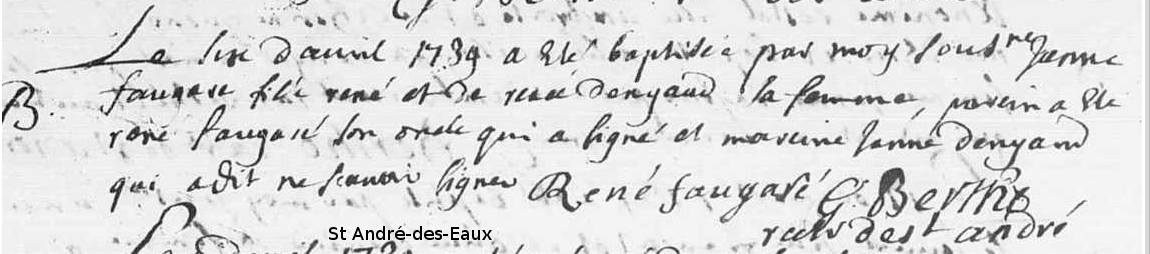 Le six d'avril 1739 a eté baptisée par moy sousne Janne
faugaré fille rené et de renée denyaud sa femme, parein a ete
B.
rené faugaré son oncle qui a signé et mareine Janne denyaud
qui a dit ne scavoir signer René faugaré G: Berthō
rectr de st andré
St André-des-Eaux